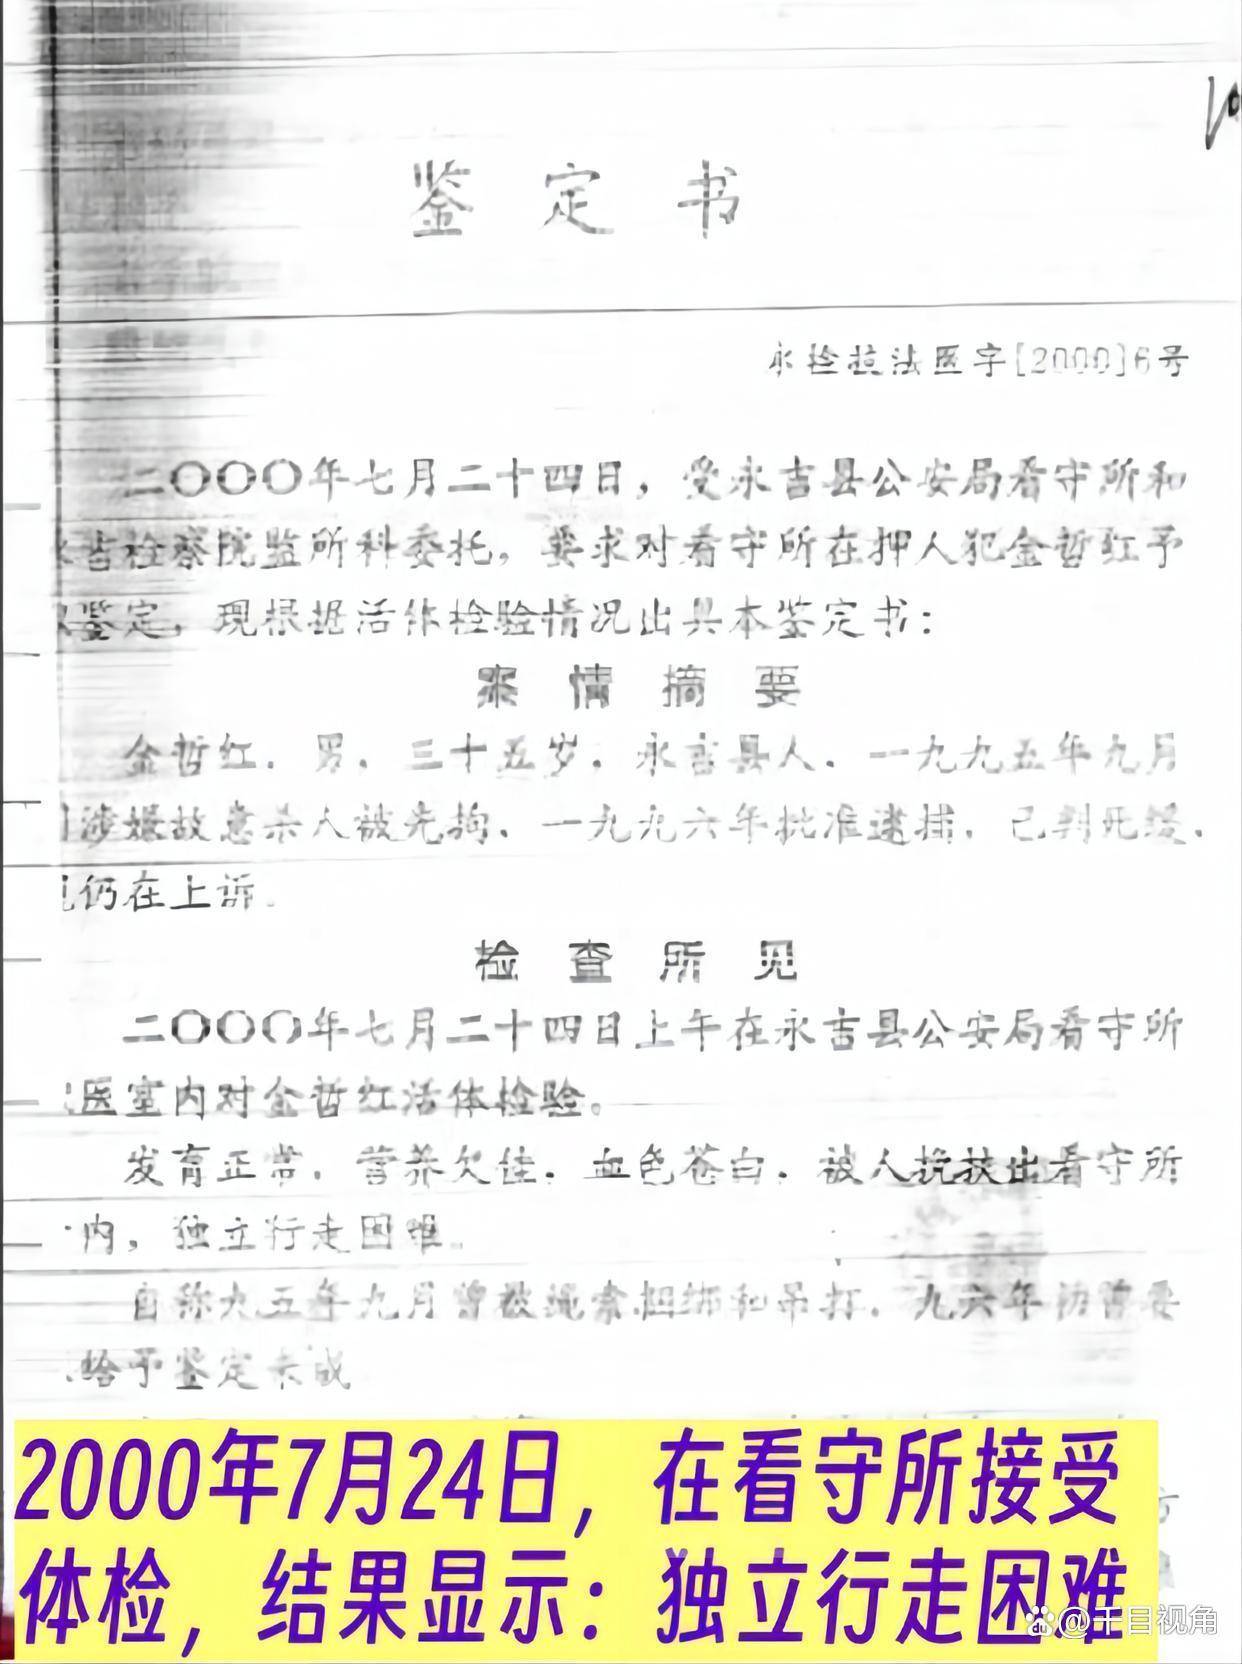 鉴定书
永检技法医字[2000]6号
二〇〇〇年七月二十四日，受永吉县公安局看守所和
检察院监所科委托，要求对看守所在押人犯金哲红予
鉴定，现根据活体检验情况出具本鉴定书：
案情摘要
金哲红，男，三十五岁，永吉县人，一九九五年九月
涉嫌故意杀人被先拘，一九九六年批准逮捕，已判死缓，
仍在上诉。
检查所见
二〇〇〇年七月二十四日上午在永吉县公安局看守所
医室内对金哲红活体检验。
发育正常，营养欠佳，血色苍白，被人搀扶出看守所
内，独立行走困难。
自称九五年九月曾被绳索捆绑和吊打，九六年初曾要
给予鉴定未成
2000年7月24日，在看守所接受
体检，结果显示：独立行走困难
@千目视角